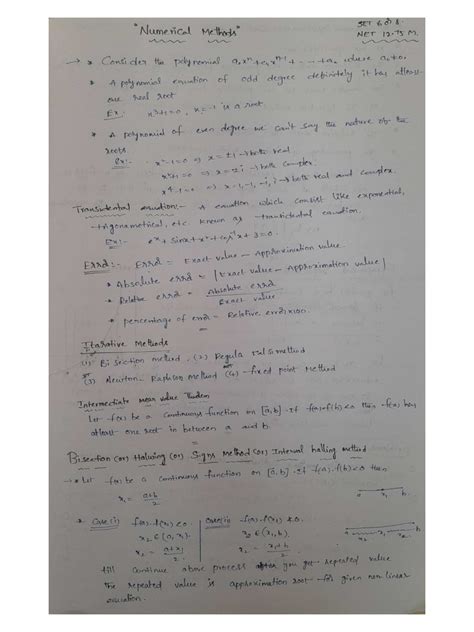 "Numerical Methods"
SET 6 or 8
NET 12.75 M.
→ * Consider the polynomial a₀xⁿ + a₁xⁿ⁻¹ + --- + aₙ where a₀≠0.
* A polynomial equation of odd degree definitely it has atleast
one real root
Ex:- x³+1=0, x=-1 is a root.
* A polynomial of even degree we can't say the nature of the
roots
Ex:- x²-1=0 ⇒ x=±1 → both real
x²+1=0 ⇒ x=±i → both complex.
x⁴-1=0 ⇒ x=1,-1,-i,i → both real and complex.
equation:- A equation which consist like exponential,
trigonometrical, etc. known as equation.
Ex:- eˣ + sinx + x² + x + 3 = 0.
Error:- Error = Exact value - Approximation value.
* Absolute error = | Exact value - Approximation value |
* Relative error = Absolute error / Exact value
* percentage of error = Relative error x 100.
Iterative Methods
(1) Bisection method, (2) Regula falsi method
(3) Newton-Raphson method (4) fixed point Method
Intermediate mean value
Let f(x) be a continuous function on [a,b]. If f(a)·f(b)<0 then f(x) has
atleast one root in between a and b.
Bisection (or) Halving (or) Signs Method (or) Interval halling method
→ * Let f(x) be a continuous function on [a,b]. If f(a).f(b)<0 then
x₁ = a+b / 2
a x₁ b
2. Case(i) f(a).f(x₁)<0. Case(ii) f(a).f(x₁) ≮ 0.
x₂ ∈ (a, x₁) x₂ ∈ (x₁, b).
x₂ = a+x₁ / 2 x₂ = x₁+b / 2
till continue above process after you get repeated value
The repeated value is approximation root for given non linear
equation.